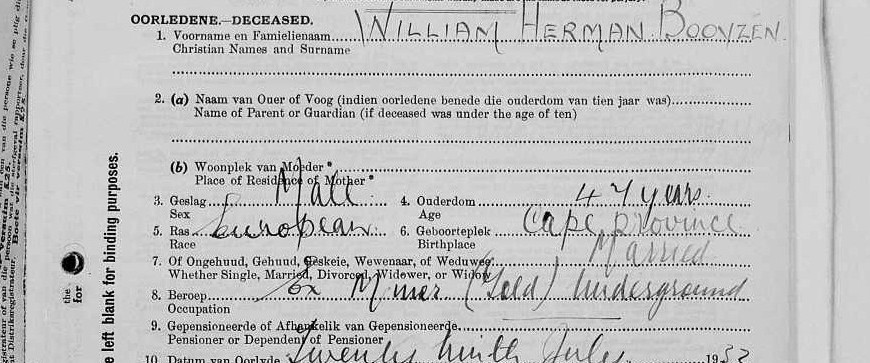 OORLEDENE.—DECEASED.
1. Voorname en Famielienaam WILLIAM HERMAN BOOYZEN.
Christian Names and Surname
2. (a) Naam van Ouer of Voog (indien oorledene benede die ouderdom van tien jaar was)
Name of Parent or Guardian (if deceased was under the age of ten)
(b) Woonplek van Moeder*
Place of Residence of Mother*
3. Geslag Male 4. Ouderdom 47 years.
Sex Age
5. Ras European 6. Geboorteplek Cape Province
Race Birthplace
7. Of Ongehuud, Gehuud, Geskeie, Wewenaar, of Weduwee Married
Whether Single, Married, Divorced, Widower, or Widow
8. Beroep Ex Miner (Gold) Underground
Occupation
9. Gepensioneerde of Afhankelik van Gepensioneerde
Pensioner or Dependent of Pensioner
10. Datum van Oorlyde Twenty Ninth July 19
e left blank for binding purposes.
the
for